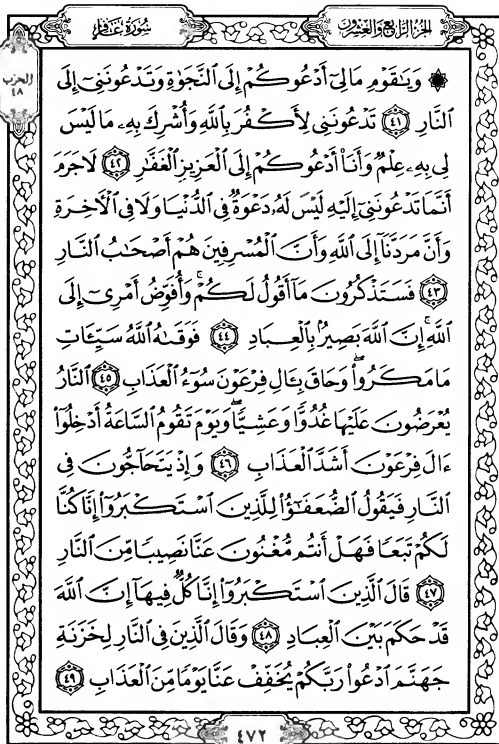 الجزء الرابع والعشرون
سورة غافر
الحزب
٤٨
۞ وَيَٰقَوْمِ مَا لِىٓ أَدْعُوكُمْ إِلَى ٱلنَّجَوٰةِ وَتَدْعُونَنِىٓ إِلَى
ٱلنَّارِ ٤١ تَدْعُونَنِى لِأَكْفُرَ بِٱللَّهِ وَأُشْرِكَ بِهِۦ مَا لَيْسَ
لِى بِهِۦ عِلْمٌ وَأَنَا۠ أَدْعُوكُمْ إِلَى ٱلْعَزِيزِ ٱلْغَفَّٰرِ ٤٢ لَا جَرَمَ
أَنَّمَا تَدْعُونَنِىٓ إِلَيْهِ لَيْسَ لَهُۥ دَعْوَةٌ فِى ٱلدُّنْيَا وَلَا فِى ٱلْءَاخِرَةِ
وَأَنَّ مَرَدَّنَآ إِلَى ٱللَّهِ وَأَنَّ ٱلْمُسْرِفِينَ هُمْ أَصْحَٰبُ ٱلنَّارِ
٤٣ فَسَتَذْكُرُونَ مَآ أَقُولُ لَكُمْ ۚ وَأُفَوِّضُ أَمْرِىٓ إِلَى
ٱللَّهِ ۚ إِنَّ ٱللَّهَ بَصِيرٌۢ بِٱلْعِبَادِ ٤٤ فَوَقَىٰهُ ٱللَّهُ سَيِّـَٔاتِ
مَا مَكَرُوا۟ ۖ وَحَاقَ بِـَٔالِ فِرْعَوْنَ سُوٓءُ ٱلْعَذَابِ ٤٥ ٱلنَّارُ
يُعْرَضُونَ عَلَيْهَا غُدُوًّا وَعَشِيًّا ۖ وَيَوْمَ تَقُومُ ٱلسَّاعَةُ أَدْخِلُوٓا۟
ءَالَ فِرْعَوْنَ أَشَدَّ ٱلْعَذَابِ ٤٦ وَإِذْ يَتَحَآجُّونَ فِى
ٱلنَّارِ فَيَقُولُ ٱلضُّعَفَٰٓؤُا۟ لِلَّذِينَ ٱسْتَكْبَرُوٓا۟ إِنَّا كُنَّا
لَكُمْ تَبَعًا فَهَلْ أَنتُم مُّغْنُونَ عَنَّا نَصِيبًا مِّنَ ٱلنَّارِ
٤٧ قَالَ ٱلَّذِينَ ٱسْتَكْبَرُوٓا۟ إِنَّا كُلٌّ فِيهَآ إِنَّ ٱللَّهَ
قَدْ حَكَمَ بَيْنَ ٱلْعِبَادِ ٤٨ وَقَالَ ٱلَّذِينَ فِى ٱلنَّارِ لِخَزَنَةِ
جَهَنَّمَ ٱدْعُوا۟ رَبَّكُمْ يُخَفِّفْ عَنَّا يَوْمًا مِّنَ ٱلْعَذَابِ ٤٩
٤٧٢